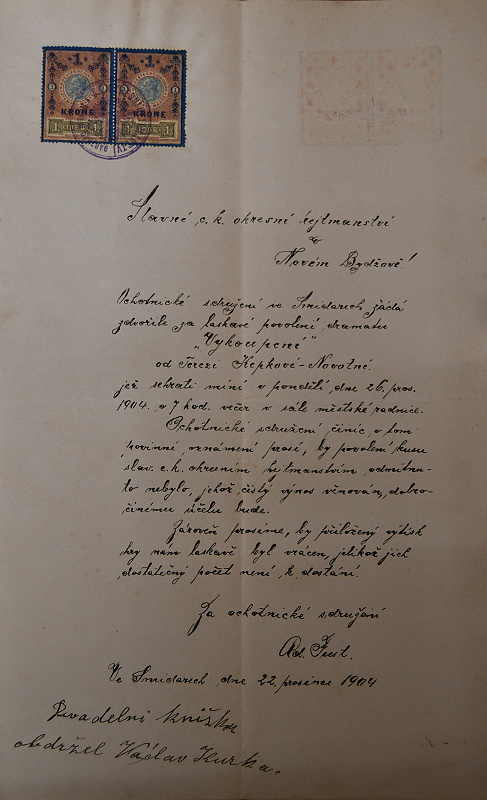 1 1
KRONE KRONE
1 1
Slavné c. k. okresní hejtmanství
v
Novém Bydžově!
Ochotnické sdružení ve Smidarech žádá
zdvořile za laskavé povolení dramatu
„Vykoupení"
od Terezi Kepkové-Novotné
jež sehrati míní v pondělí, dne 26. pros.
1904. o 7 hod. večer v sále městské radnice.
Ochotnické sdružení, činíc o tom
povinné oznámení prosí, by povolení kusu
slav. c. k. okresním hejtmanstvím, odmítnu-
to nebylo, jehož čistý výnos věnován, dobro-
činému účelu bude.
Zároveň prosíme, by přiložený výtisk
hry nám laskavě byl vrácen, jelikož jich
dostatečný počet není k dostání.
Za ochotnické sdružení
Ad.
Ve Smidarech, dne 22. prosince 1904
Divadelní knížku
obdržel Václav Kurka.